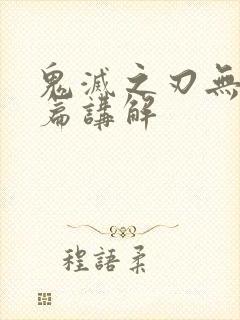 鬼滅之刃無
篇講解
程語柔